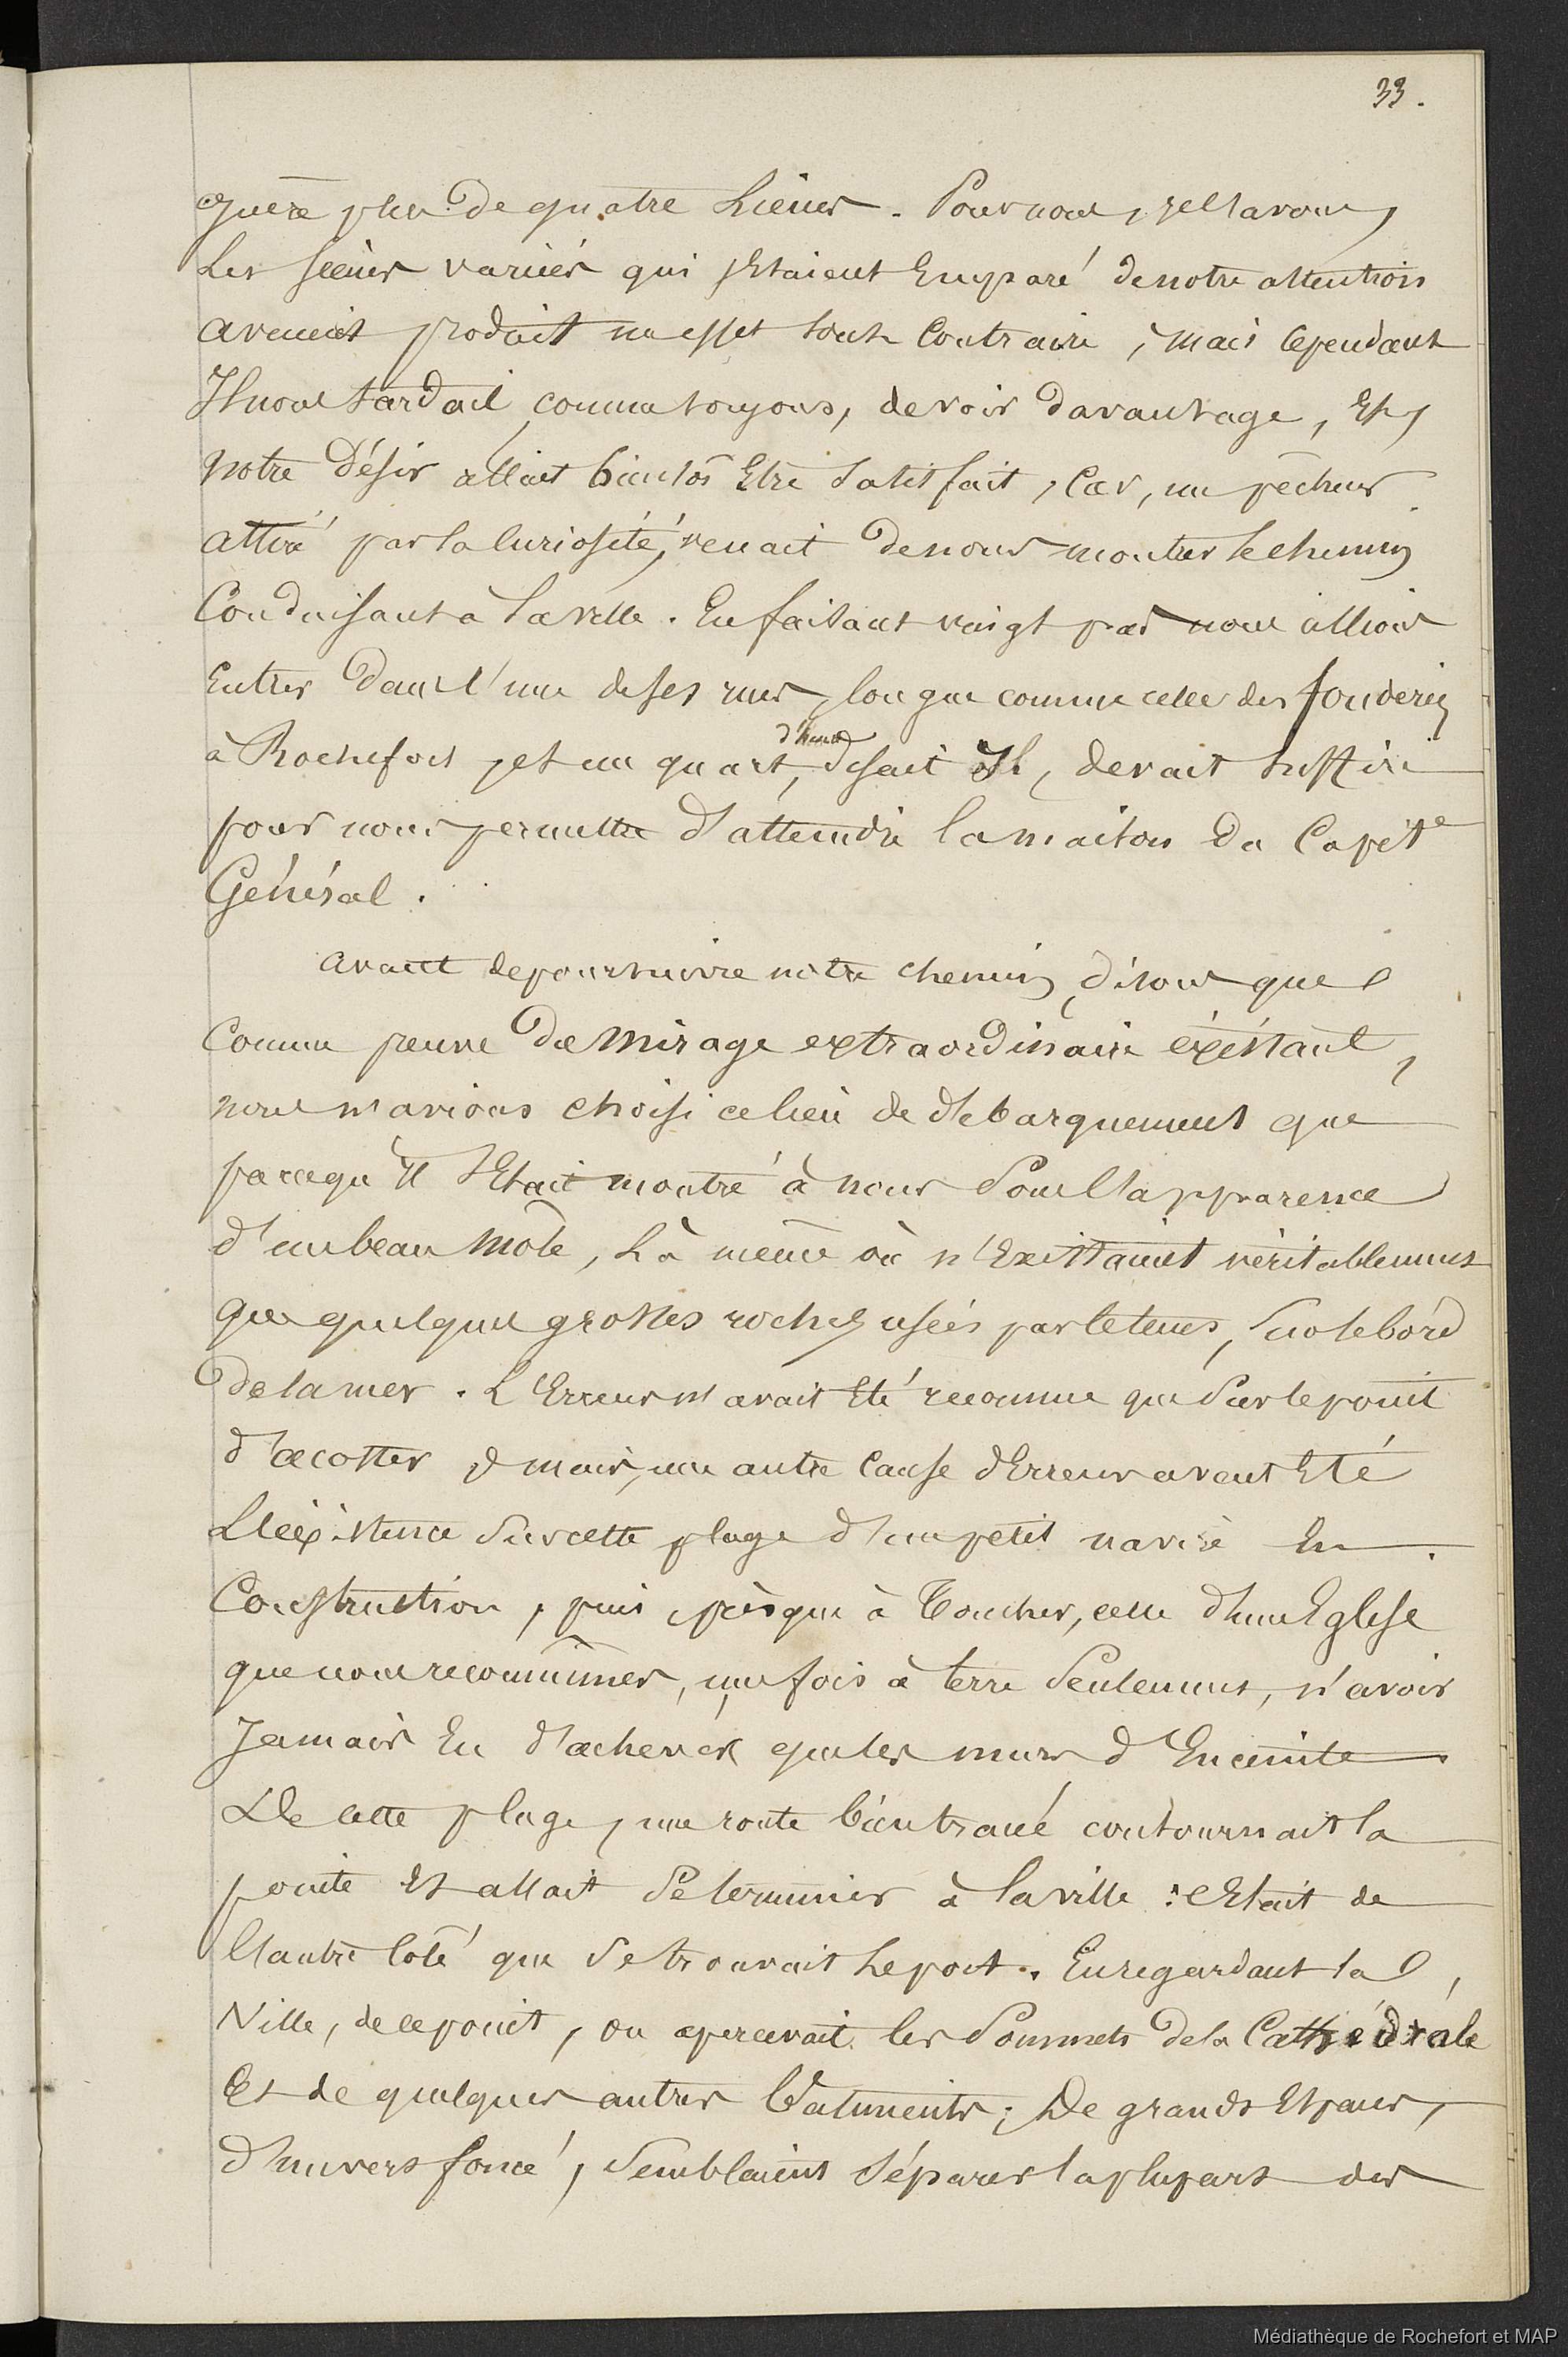 33.
guère plus de quatre Lieues. Pour nous, je l'avoue,
Les scènes variées qui s'Etaient Emparé de notre attention
avaient produit un effet tout Contraire, mais cependant
Il nous tardait, comme toujours, de voir davantage, Et,
notre Désir allait bientôt Etre Satisfait, Car, un pêcheur
attiré par la Curiosité, venait de nous montrer le chemin
Conduisant à la ville. En faisant vingt pas nous allions
Entrer dans l'une de ses rues, longue comme celle des fonderies
à Rochefort, et un quart d'heure, disait Il, devait suffire
pour nous permettre d'atteindre la maison du Capite
Général.
avant de poursuivre notre chemin, disons que
Comme preuve du mirage extraordinaire éxistant,
nous n'avions choisi ce lieu de débarquement que
parcequ'Il s'Etait montré à nous Sous l'apparence
d'un beau môle, Là même où n'Existaient véritablement
que quelques grosses roches usées par le tems, Sur le bord
de la mer. L'Erreur n'avait Eté reconnue que Sur le point
d'accoster, mais, une autre Cause d'Erreur avait Eté
L'éxistence Sur cette plage d'un petit navire En
Construction, puis presque à Toucher, celle d'une Eglise
que nous reconnumes, une fois à terre Seulement, n'avoir
Jamais Eu d'achevés que les murs d'Enceinte
De cette plage, une route bien tracé contournait la
pointe Et allait Se terminer à la ville: c'Etait de
l'autre Coté que Se trouvait Le port. En regardant la
Ville, de ce point, on apercevait les Sommets de la Cathédrale
Et de quelques autres Batiments; De grands Espaces,
d'un vert foncé, Semblaient Séparer la plupart des
Médiathèque de Rochefort et MAP